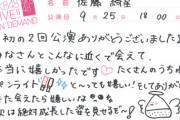 AKB48
LIVE!!
ON DEMAND
佐藤 綺星
9月25日 18:00
初の2回公演ありがとうございました
みなさんとこんなに近くで会えて、
本当に嬉しかったです♡ たくさんのうちわ
ペンライト とっても嬉しい！そしてありが
また会えたら嬉しいな
次は絶対成長した姿を見せるぞ〜！